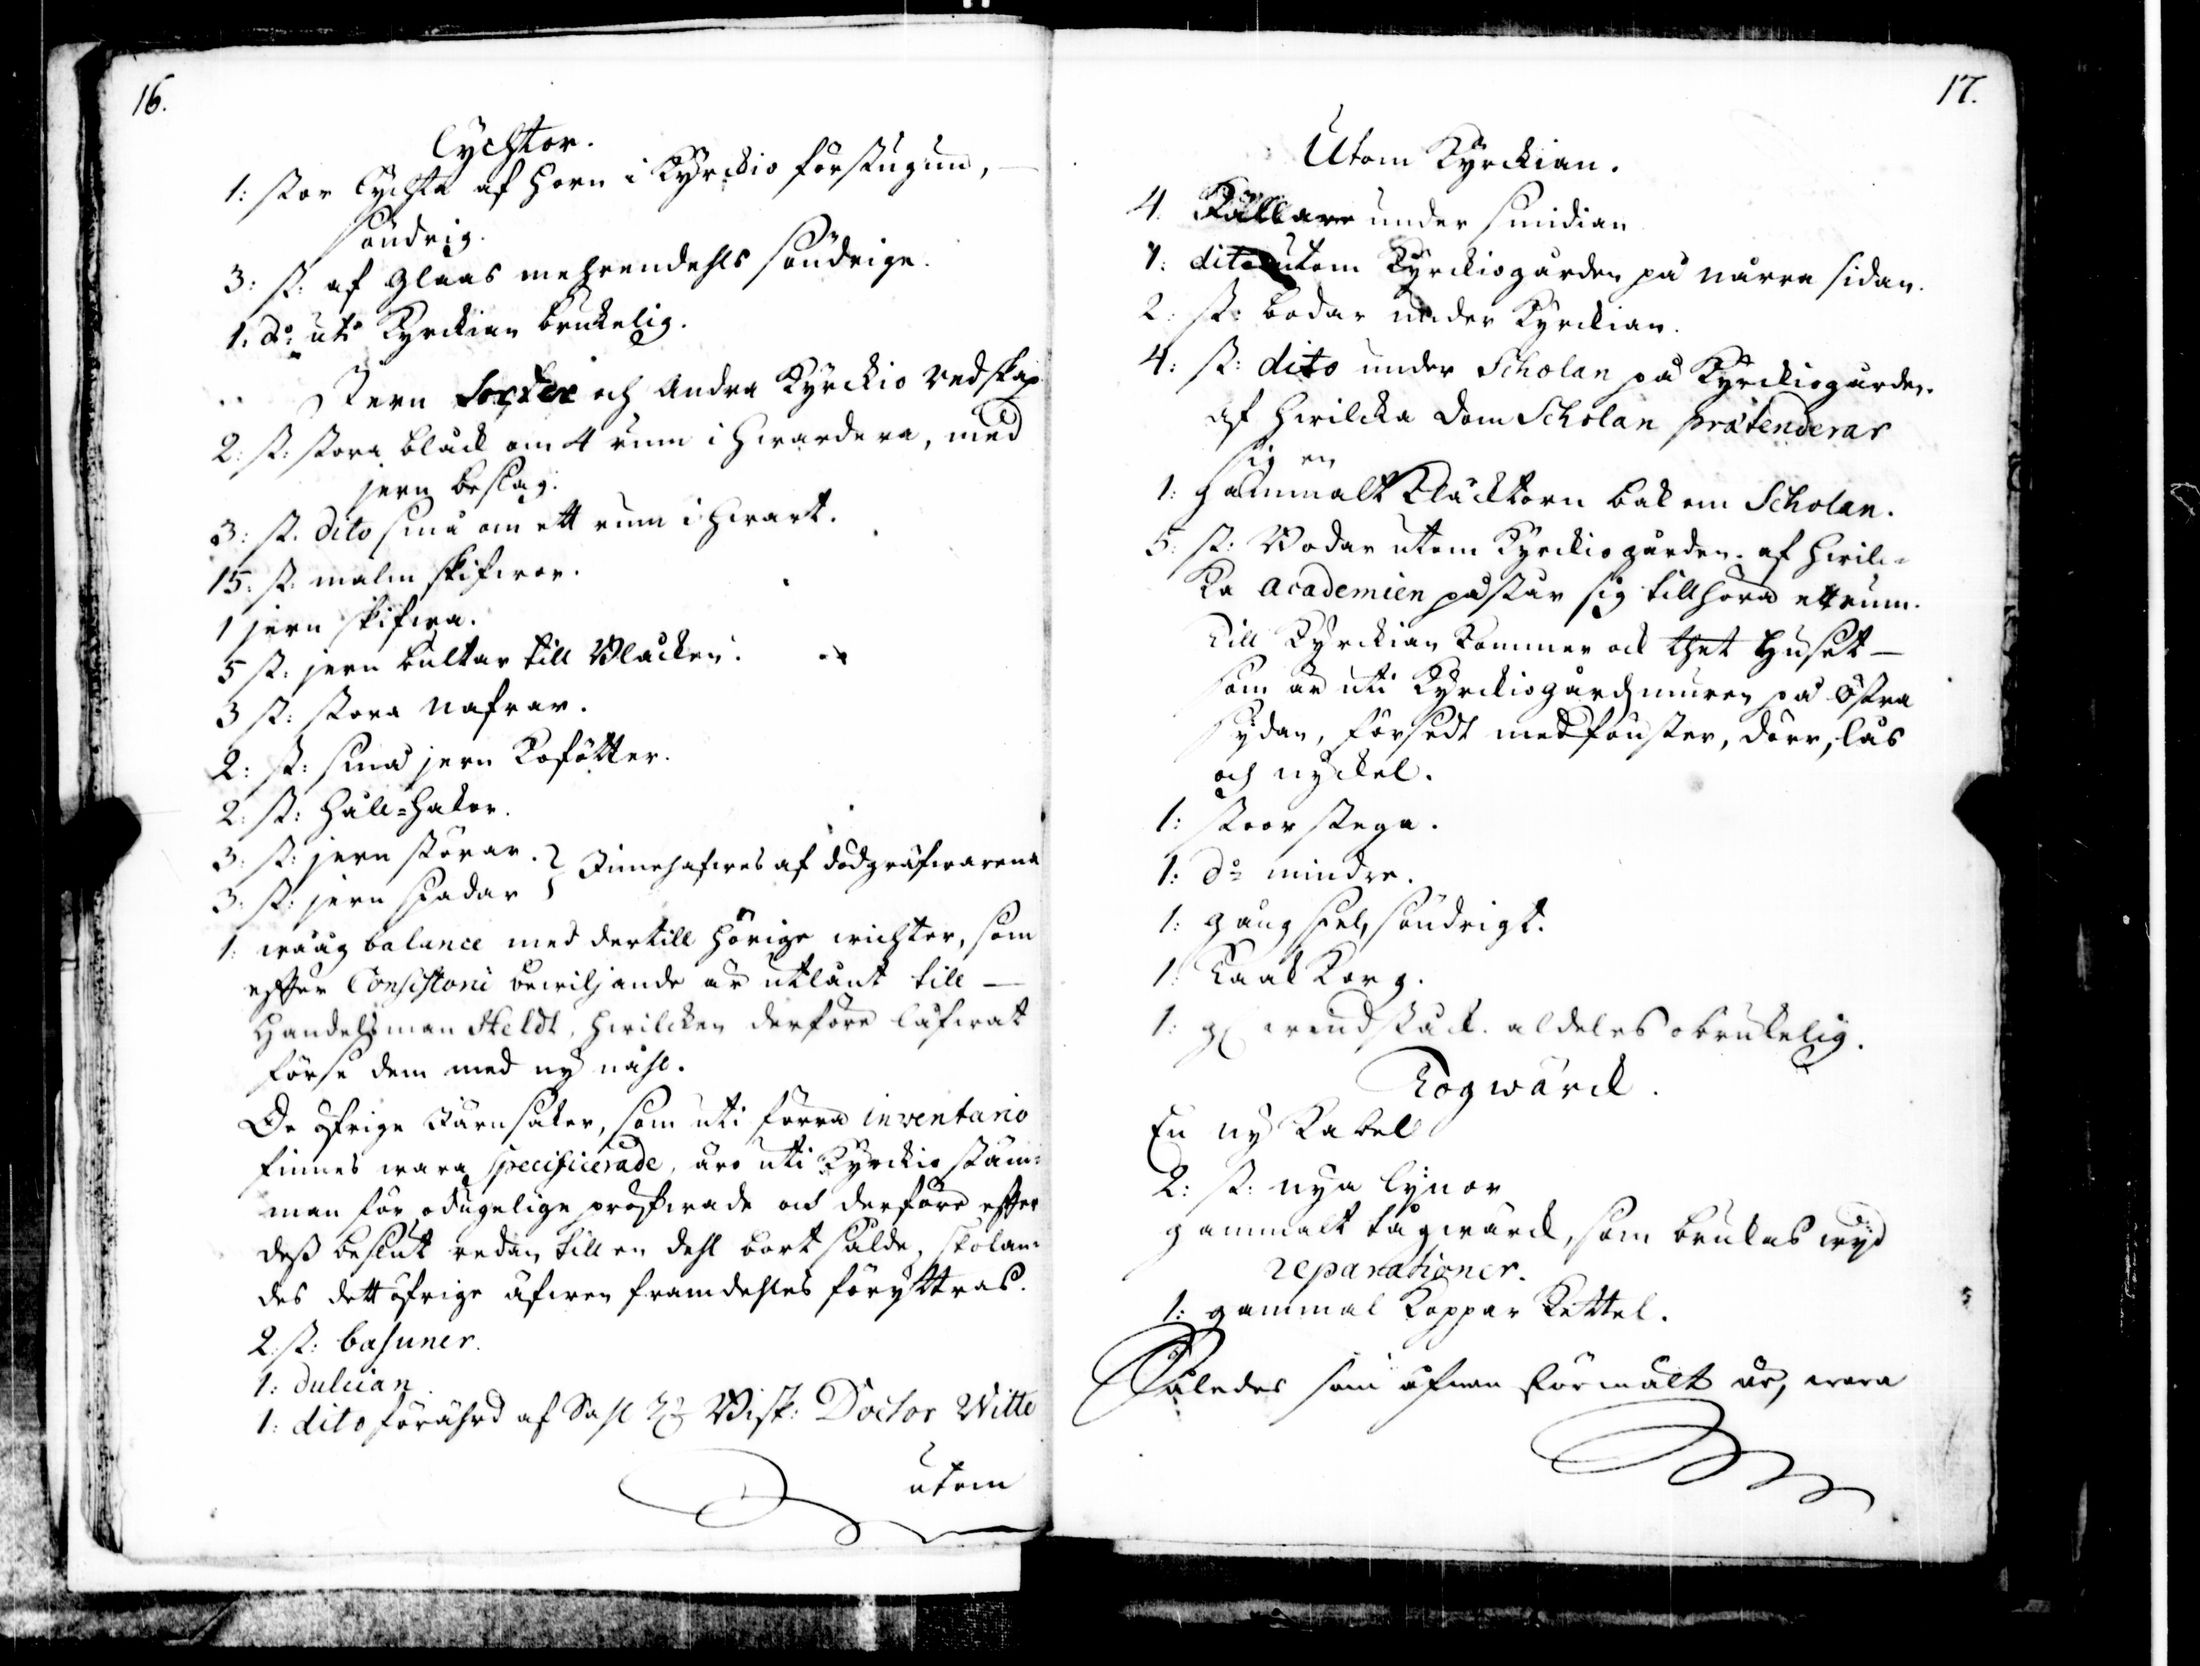 16.
Lychtor.
1: stor Lychta af horn i Kyrckio förstugun,
söndrig.
3: st: af Glaas mehrendehls söndrige.
1. d:o uti Kyrckian brukelig.
Jern och Andra Kyrckio Redskap
2: st: stora blåck om 4 rum i hwardera, med
jern beslag.
3: st. dito små om ett rum i hwart.
15: st: malm skifwor.
1 jern skifwa.
5 st: jern bultar till Blåcken.
3 st: stora Nafrar.
2: st: små jern Kofötter.
2: st: Häll-hakor.
3: st: jern störar. } Innehafwes af dödgräfwarena
3: st: jern spadar
1: wåug balance med dertill hörige wichter, som
effter Consistorii bewiljande är utlånt till
Handelsman Heldt, hwilcken derföre låfwat
förse dem med ny nåhl.
De öfrige Järnsaker, som uti förra inventario
finnes wara specificerade, äro uti Kyrckio stäm-
man för odugelige pröfwade och derföre effter
dess beslut redan till en dehl bort sålde, skolan-
des dett öfrige äfwen framdehles föryttras.
2: st: basuner.
1: dulcian.
1: dito förährd af Sahl H:r Bisk: Doctor Witte
utom
17.
Utom Kyrckian.
4. Källare under smidian
1: dito utom Kyrckiogården på norra sidan.
2: st: bodar under Kyrckian.
4: st: dito under Scholan på Kyrckiogården.
af hwilcka dom Scholan prætenderar
sig en
1: gammalt Kläcktorn bak om Scholan.
5: st: Bodar utom Kyrckiogården. af hwilc-
ka Academien påstår sig tillhöra ett rum.
Till Kyrckian kommer ock thet Huset
som är uti Kyrckiogårdzmuren på östra
sydan, försedt med fönster, dörr, lås
och nyckel.
1: stoor stega.
1: d:o mindre.
1: gång spel, söndrigt.
1: Kaak Korg.
1: gl windstäck. aldeles obrukelig.
Togwärck.
En ny Kabel
2: st: nya lynor
gammalt tågwärck, som brukas wyd
reparationer.
1: gammal Koppar Kettel.
Således som ofwan förmält är, wara